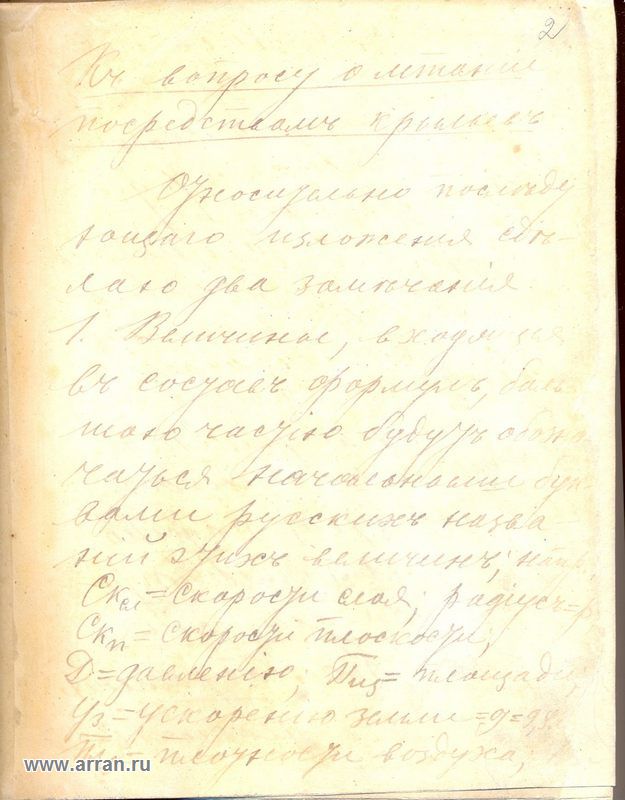 2
Къ вопросу о летаніи
посредствомъ крыльевъ
Относительно послѣду
ющаго изложенія сдѣ-
лаю два замѣчанія.
1. Величины, входящія
въ составъ формулъ, боль
шою частію будутъ обозна
чаться начальными бук
вами русскихъ назва-
ній этихъ величинъ; напр.
Сксл = скорости слоя; радіусъ = р
Скп = скорости плоскости;
Д = давленію; Плщ = площади;
Уз = ускоренію земли = g = 9,8
Пл = плотности воздуха;
www.arran.ru